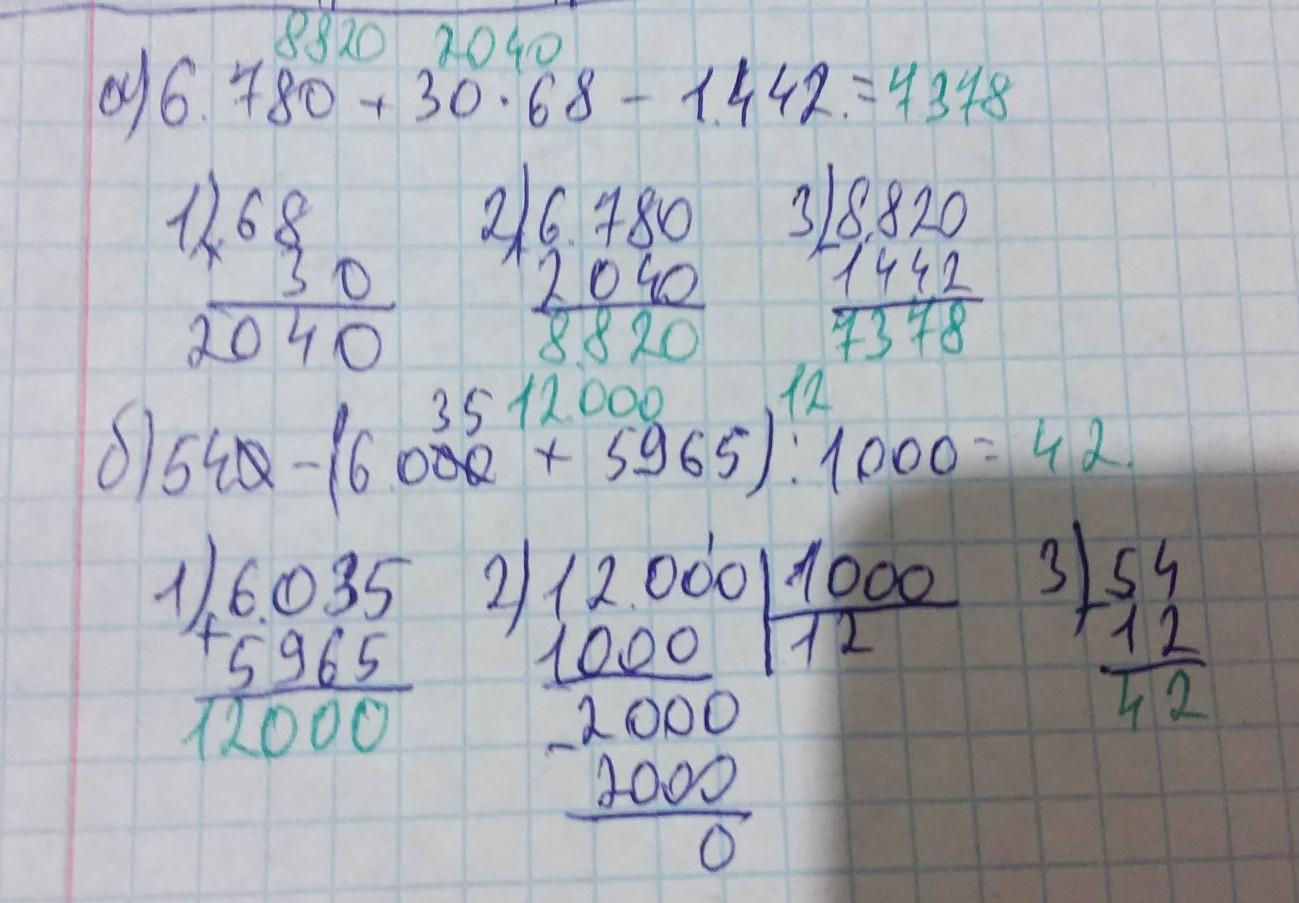 8820 2040
а) 6.780 + 30 · 68 - 1.442. = 7378
1) 68 2) 6.780 3) 8.820
× 30 + 2040 - 1442
2040 8.820 7378
35 12.000 12
б) 540 - (6.000 + 5965) : 1000 = 42.
1) 6.035 2) 12.000 | 1000 3) 54
+ 5965 1000 | 12 - 12
12000 - 2000 42
2000
0